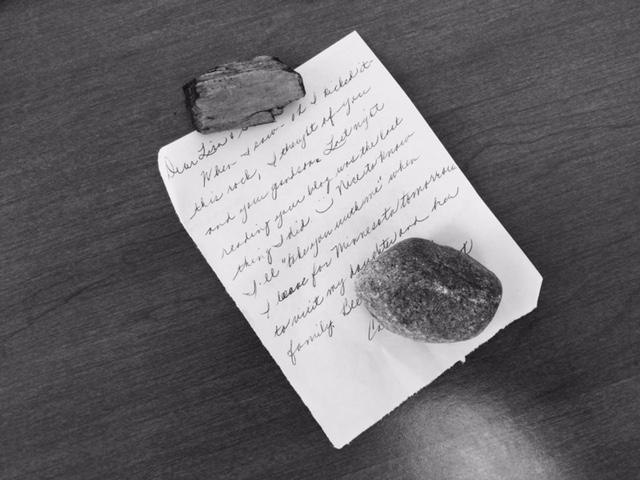 Dear Lisa &
When I saw I picked it
this rock, I thought of you
and your gardson Last night
reading your blog was the last
thing I did :) Nice to know
I'll "take you with me" when
I leave for Minnesota tomorrow
to visit my daughter and her
family.